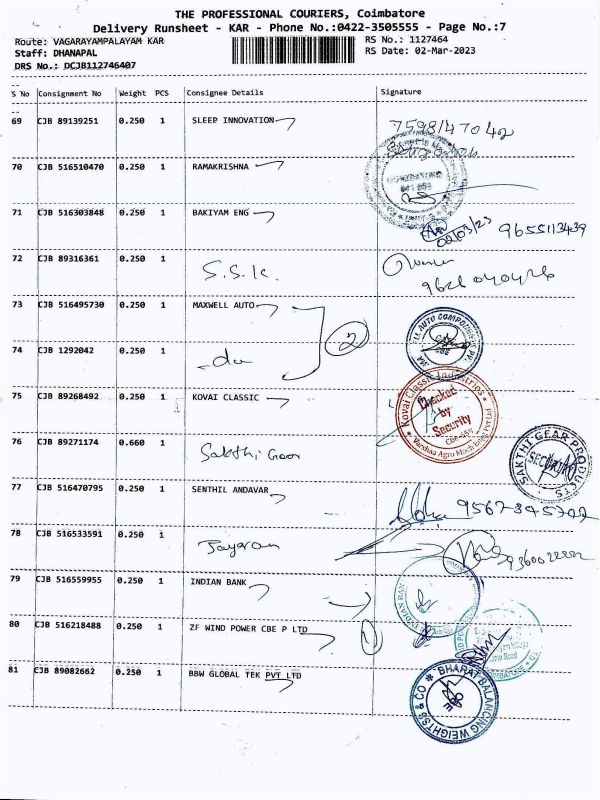 THE PROFESSIONAL COURIERS, Coimbatore
Delivery Runsheet - KAR - Phone No.:0422-3505555 - Page No.:7
Route: VAGARAYAMPALAYAM KAR RS No.: 1127464
Staff: DHANAPAL RS Date: 02-Mar-2023
DRS No.: DCJB112746407
S No Consignment No Weight PCS Consignee Details Signature
69 CJB 89139251 0.250 1 SLEEP INNOVATION 7598147042
70 CJB 516510470 0.250 1 RAMAKRISHNA
71 CJB 516303848 0.250 1 BAKIYAM ENG 02/03/23 9655113439
72 CJB 89316361 0.250 1 S.S.K.
73 CJB 516495730 0.250 1 MAXWELL AUTO
2
74 CJB 1292042 0.250 1 -do
75 CJB 89268492 0.250 1 KOVAI CLASSIC
Kovai Classic Industries
Checked
by
Security
76 CJB 89271174 0.660 1 Sakthi Gear
SAKTHI GEAR PRODUCTS
SECURITY
77 CJB 516470795 0.250 1 SENTHIL ANDAVAR
78 CJB 516533591 0.250 1 Jayaram
79 CJB 516559955 0.250 1 INDIAN BANK
INDIAN BAN
80 CJB 516218488 0.250 1 ZF WIND POWER CBE P LTD
81 CJB 89082662 0.250 1 BBW GLOBAL TEK PVT LTD
BHARAT BALANCING WEIGHTS & CO